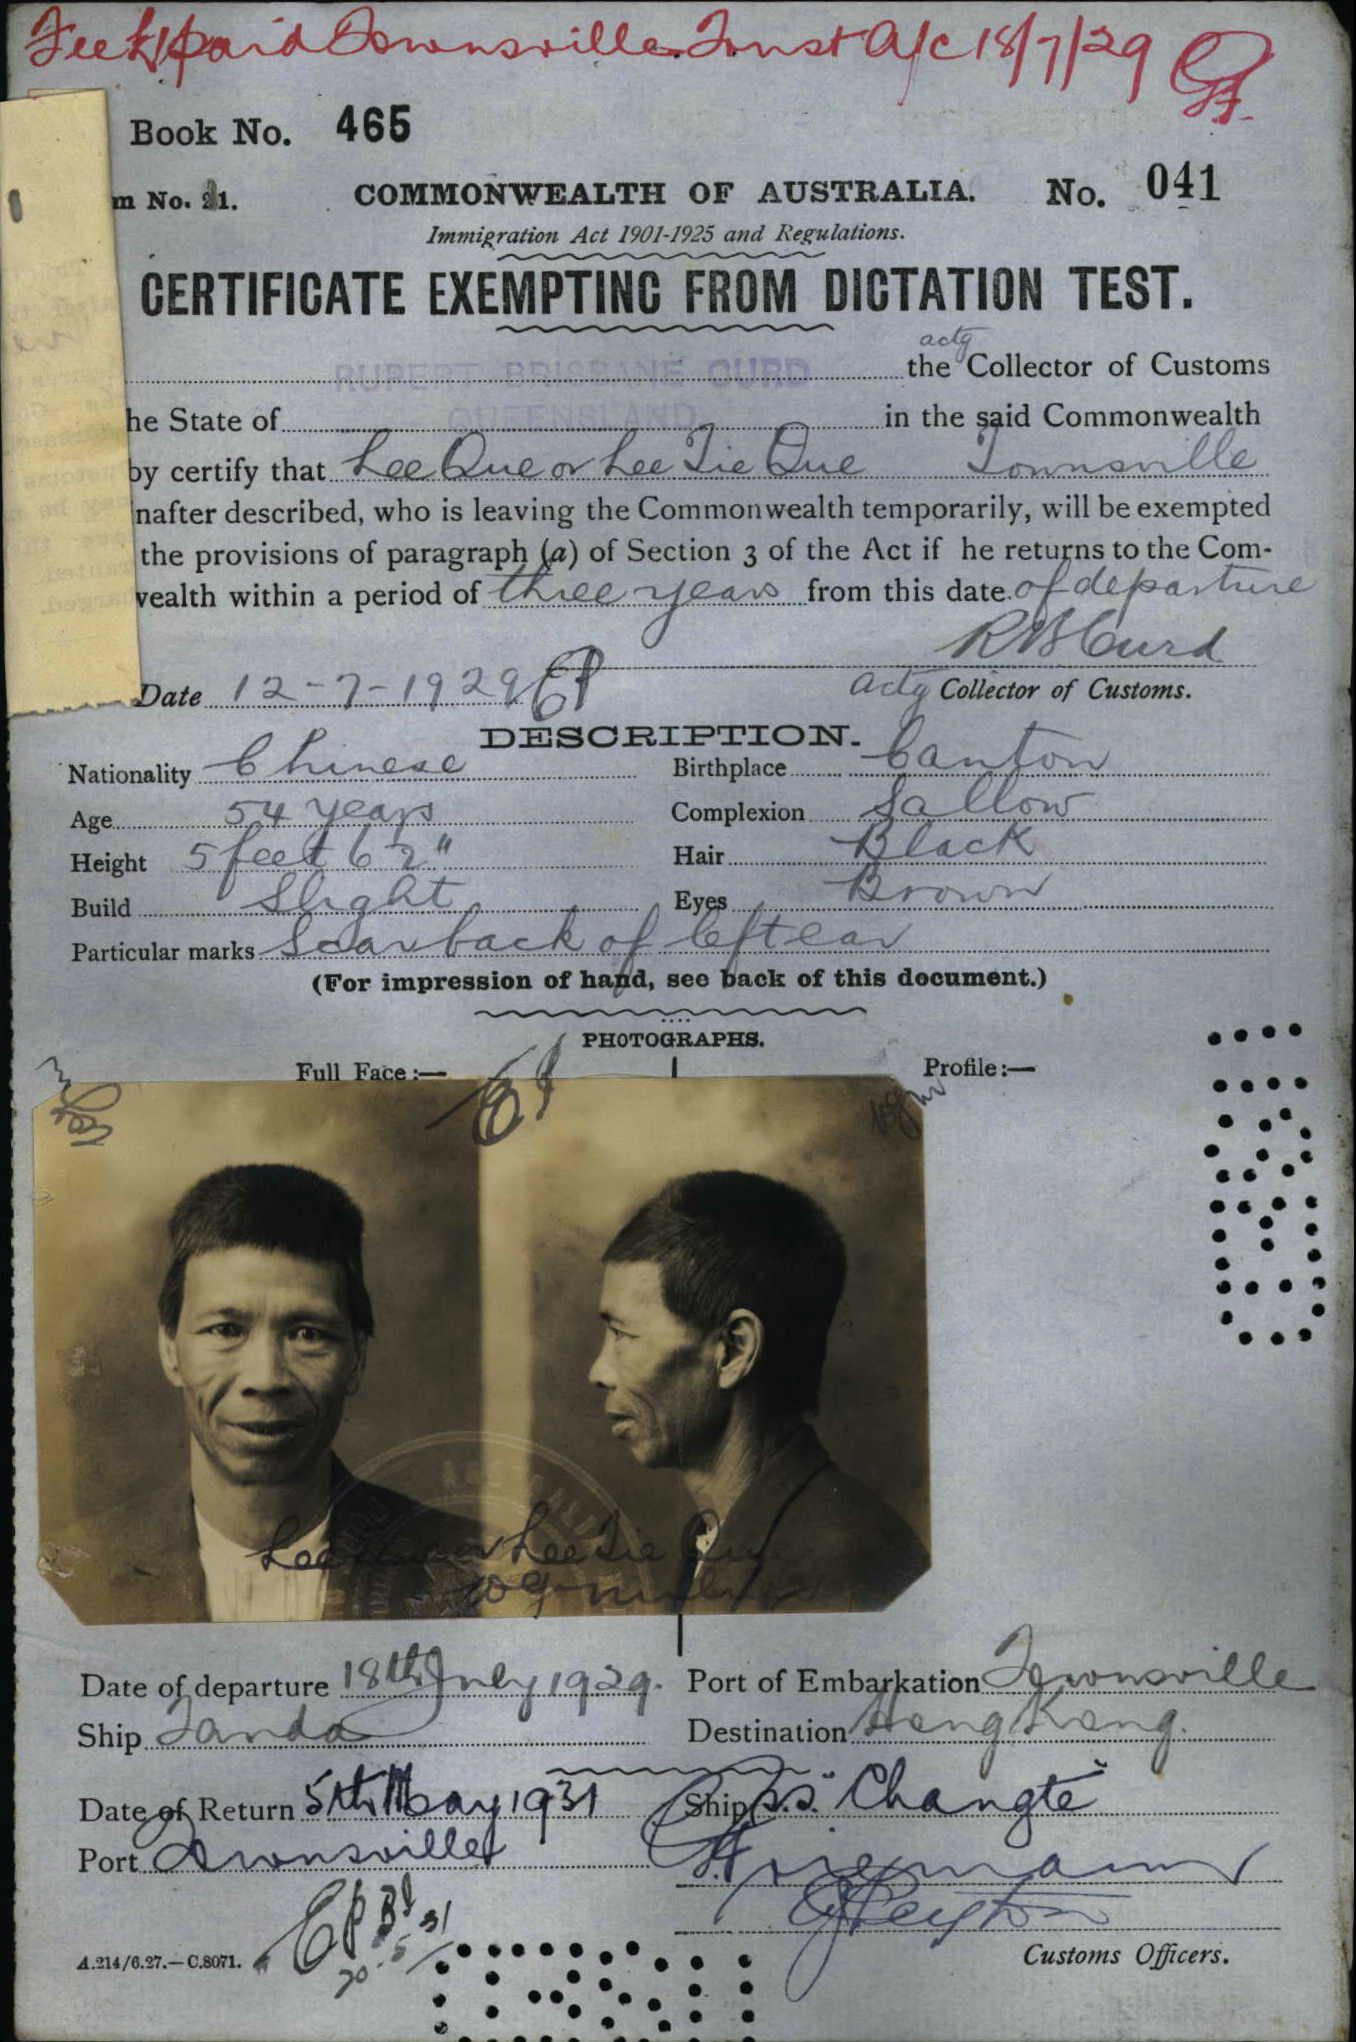 Fee £1 paid Townsville Trust A/c 18/7/29
Book No. 465
m No. 21. COMMONWEALTH OF AUSTRALIA. No. 041
Immigration Act 1901-1925 and Regulations.
CERTIFICATE EXEMPTING FROM DICTATION TEST.
actg
RUPERT BRISBANE CURD the Collector of Customs
he State of QUEENSLAND in the said Commonwealth
by certify that Lee Que or Lee Tie Que Townsville
nafter described, who is leaving the Commonwealth temporarily, will be exempted
the provisions of paragraph (a) of Section 3 of the Act if he returns to the Com-
wealth within a period of three years from this date of departure
R B Curd
Date 12-7-1929 actg Collector of Customs.
DESCRIPTION.
Nationality Chinese Birthplace Canton
Age 54 years Complexion Sallow
Height 5 feet 6 2" Hair Black
Build Slight Eyes Brown
Particular marks Scar back of left ear
(For impression of hand, see back of this document.)
PHOTOGRAPHS.
Full Face:— Profile:—
Lee Que or Lee Tie Que
Date of departure 18th July 1929. Port of Embarkation Townsville
Ship Tanda Destination Hong Kong.
Date of Return 5th May 1931 Ship S.S. "Changte"
Port Townsville
20-5-31
A.214/6.27.—C.8071. Customs Officers.